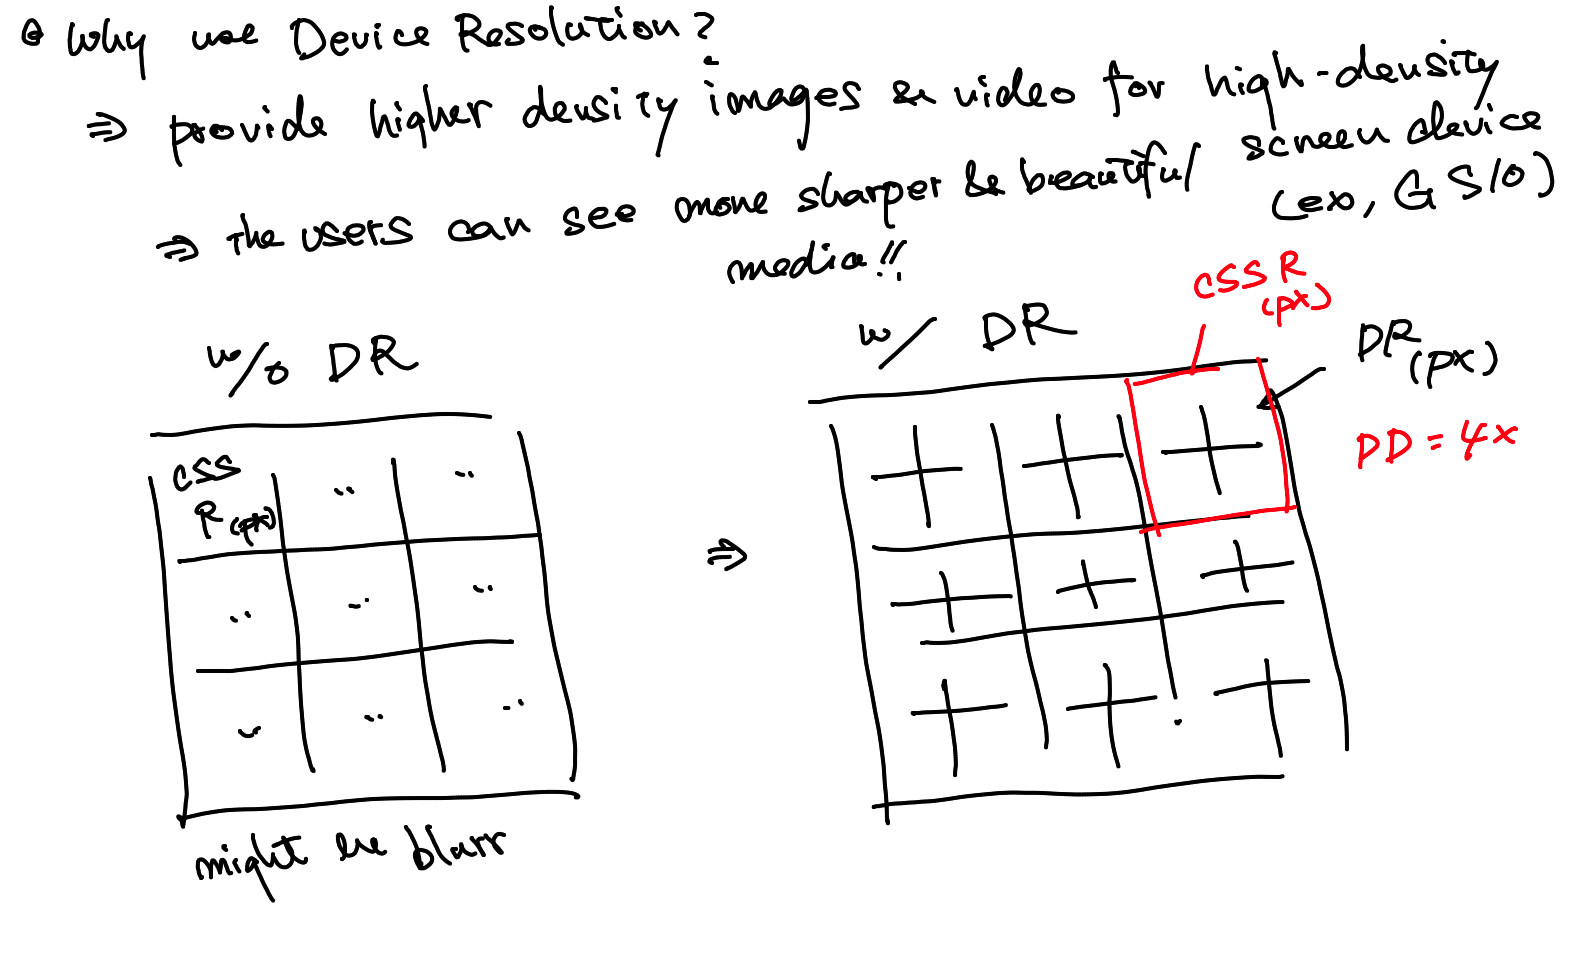 • Why use Device Resolution?
⇒ provide higher density images & video for high-density
screen device
(ex, GS10)
⇒ The users can see more sharper & beautiful
media!!
w/o DR
CSS
R(px)
might be blurr
⇒
w/ DR
CSS R
(px)
DR(px)
DD = 4x